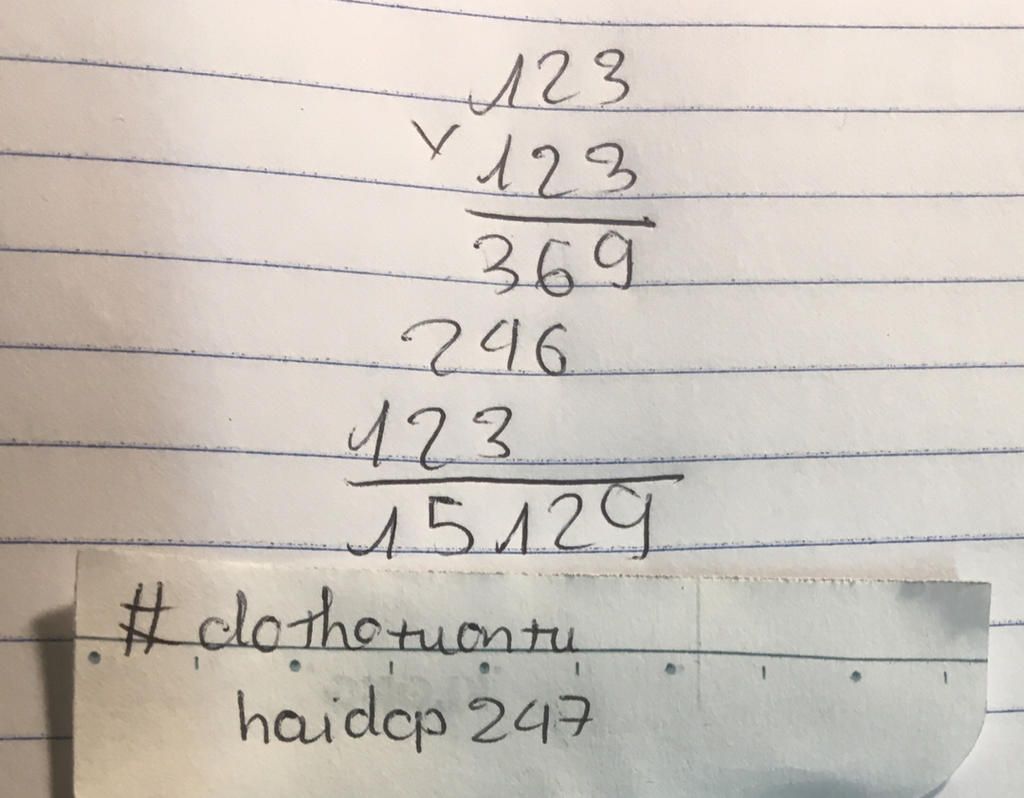 123
× 123
369
246
123
15129
#dothotuontu
haidcp247